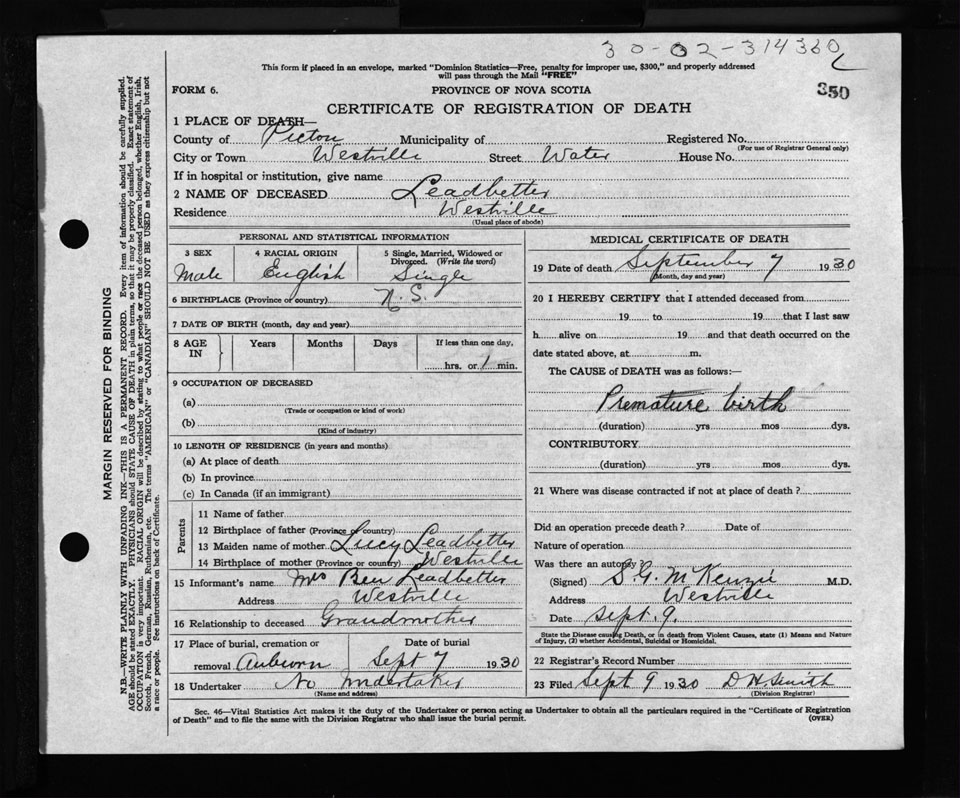 30-02-314360
This form if placed in an envelope, marked "Dominion Statistics—Free, penalty for improper use, $300," and properly addressed
will pass through the Mail "FREE"
FORM 6. PROVINCE OF NOVA SCOTIA 350
CERTIFICATE OF REGISTRATION OF DEATH
1 PLACE OF DEATH—
County of Pictou Municipality of Registered No.
(For use of Registrar General only)
City or Town Westville Street Water House No.
If in hospital or institution, give name
2 NAME OF DECEASED Leadbetter
Residence Westville
(Usual place of abode)
PERSONAL AND STATISTICAL INFORMATION
3 SEX 4 RACIAL ORIGIN 5 Single, Married, Widowed or
Divorced. (Write the word)
Male English Single
6 BIRTHPLACE (Province or country) N.S.
7 DATE OF BIRTH (month, day and year)
8 AGE IN Years Months Days If less than one day,
hrs. or 1 min.
9 OCCUPATION OF DECEASED
(a)
(Trade or occupation or kind of work)
(b)
(Kind of industry)
10 LENGTH OF RESIDENCE (in years and months)
(a) At place of death
(b) In province
(c) In Canada (if an immigrant)
Parents
11 Name of father
12 Birthplace of father (Province or country)
13 Maiden name of mother Lucy Leadbetter
14 Birthplace of mother (Province or country) Westville
15 Informant's name Mrs Ben Leadbetter
Address Westville
16 Relationship to deceased Grandmother
17 Place of burial, cremation or Date of burial
removal Auburn Sept 7 1930
18 Undertaker No Undertaker
(Name and address)
MEDICAL CERTIFICATE OF DEATH
19 Date of death September 7 1930
(Month, day and year)
20 I HEREBY CERTIFY that I attended deceased from
19 to 19 that I last saw
h alive on 19 and that death occurred on the
date stated above, at m.
The CAUSE of DEATH was as follows:—
Premature birth
(duration) yrs mos dys.
CONTRIBUTORY
(duration) yrs mos dys.
21 Where was disease contracted if not at place of death?
Did an operation precede death? Date of
Nature of operation
Was there an autopsy?
(Signed) S.G. McKenzie M.D.
Address Westville
Date Sept. 9.
State the Disease causing Death, or in death from Violent Causes, state (1) Means and Nature
of Injury, (2) whether Accidental, Suicidal or Homicidal.
22 Registrar's Record Number
23 Filed Sept 9 1930 D H Smith
(Division Registrar)
Sec. 46—Vital Statistics Act makes it the duty of the Undertaker or person acting as Undertaker to obtain all the particulars required in the "Certificate of Registration
of Death" and to file the same with the Division Registrar who shall issue the burial permit. (OVER)
MARGIN RESERVED FOR BINDING
N.B.—WRITE PLAINLY WITH UNFADING INK—THIS IS A PERMANENT RECORD. Every item of information should be carefully supplied.
AGE should be stated EXACTLY. PHYSICIANS should STATE CAUSE OF DEATH in plain terms, so that it may be properly classified. Exact statement of
OCCUPATION is very important. RACIAL ORIGIN will be described by stating to what people or race the deceased person belonged, whether English, Irish,
Scotch, French, German, Russian, Ruthenian, etc. The terms "AMERICAN" or "CANADIAN" SHOULD NOT BE USED as they express citizenship but not
a race or people. See instructions on back of Certificate.